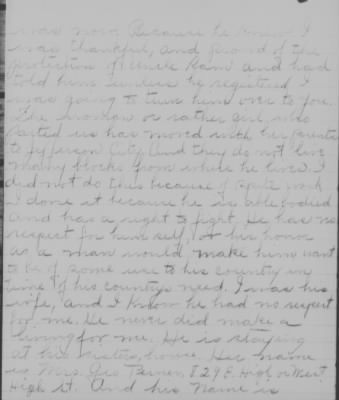 was now Because he knew I
was thankful, and proud of the
protection of Uncle Sam and had
told him unless he registered I
was going to turn him over to you.
The woman or rather girl, who
parted us has moved with her parents
to Jefferson City And they do not live
many blocks from where he lives. I
did not do this because of spite work
I done it because he is able bodied
and has a right to fight. He has no
respect for him self, or his honor
as a man would make him want
to be of some use to his country in
time of his countrys need. I was his
wife, and I know he had no respect
for me. He never did make a
living for me. He is staying
at his sisters, house. Her name
is Mrs. Geo 829 E. High or West
High st. And his name is